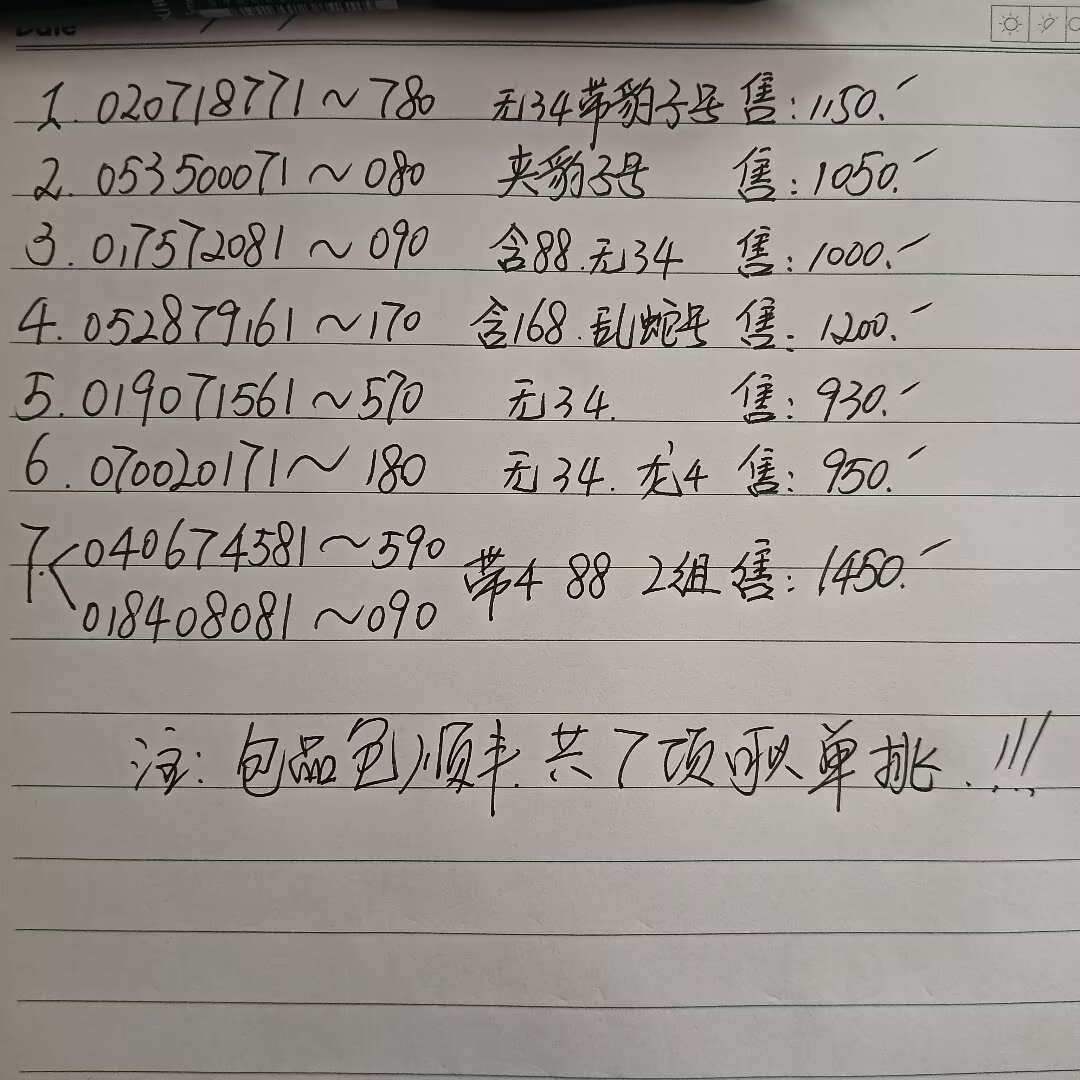 Date
1. 020718771~780 无34带豹子号 售:1150.
2. 053500071~080 夹豹子号 售:1050.
3. 017572081~090 含88.无34 售:1000.
4. 052879161~170 含168.乱蛇号 售:1200.
5. 019071561~570 无34. 售:930.
6. 070020171~180 无34.龙4 售:950.
7. 040674581~590
018408081~090 带4 88 2组 售:1450.
注:包品包顺丰.共7项可以单挑.!!!